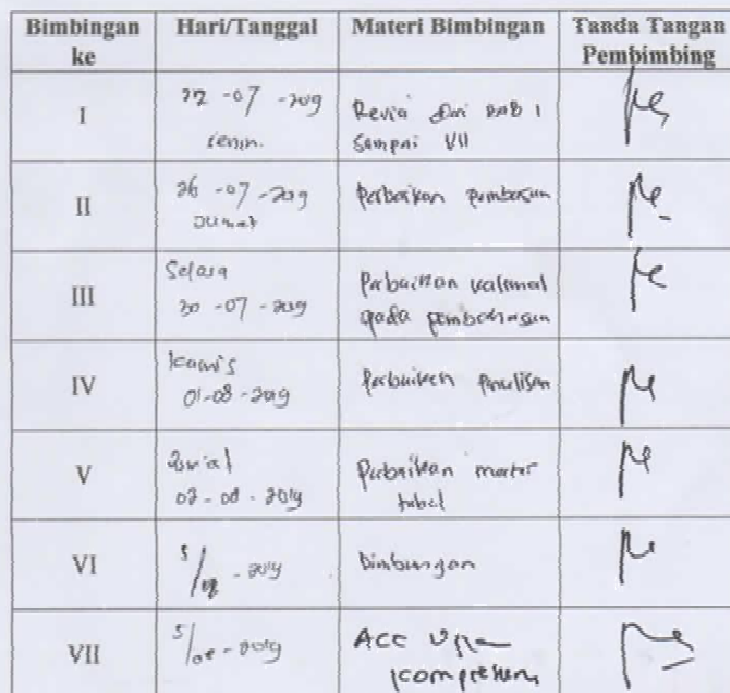 Bimbingan ke
Hari/Tanggal
Materi Bimbingan
Tanda Tangan Pembimbing
I
22 - 07 - 2019
senin.
Revisi dari BAB 1
sampai VII
II
26 - 07 - 2019
Jumat
Perbaikan
III
Selasa
30 - 07 - 2019
Perbaikan kalimat
pada pembahasan
IV
Kamis
01-08-2019
Perbaikan Penulisan
V
02 - 08 - 2019
Perbaikan
tabel
VI
5/08 - 2019
Bimbungan
VII
5/08 - 2019
ACC